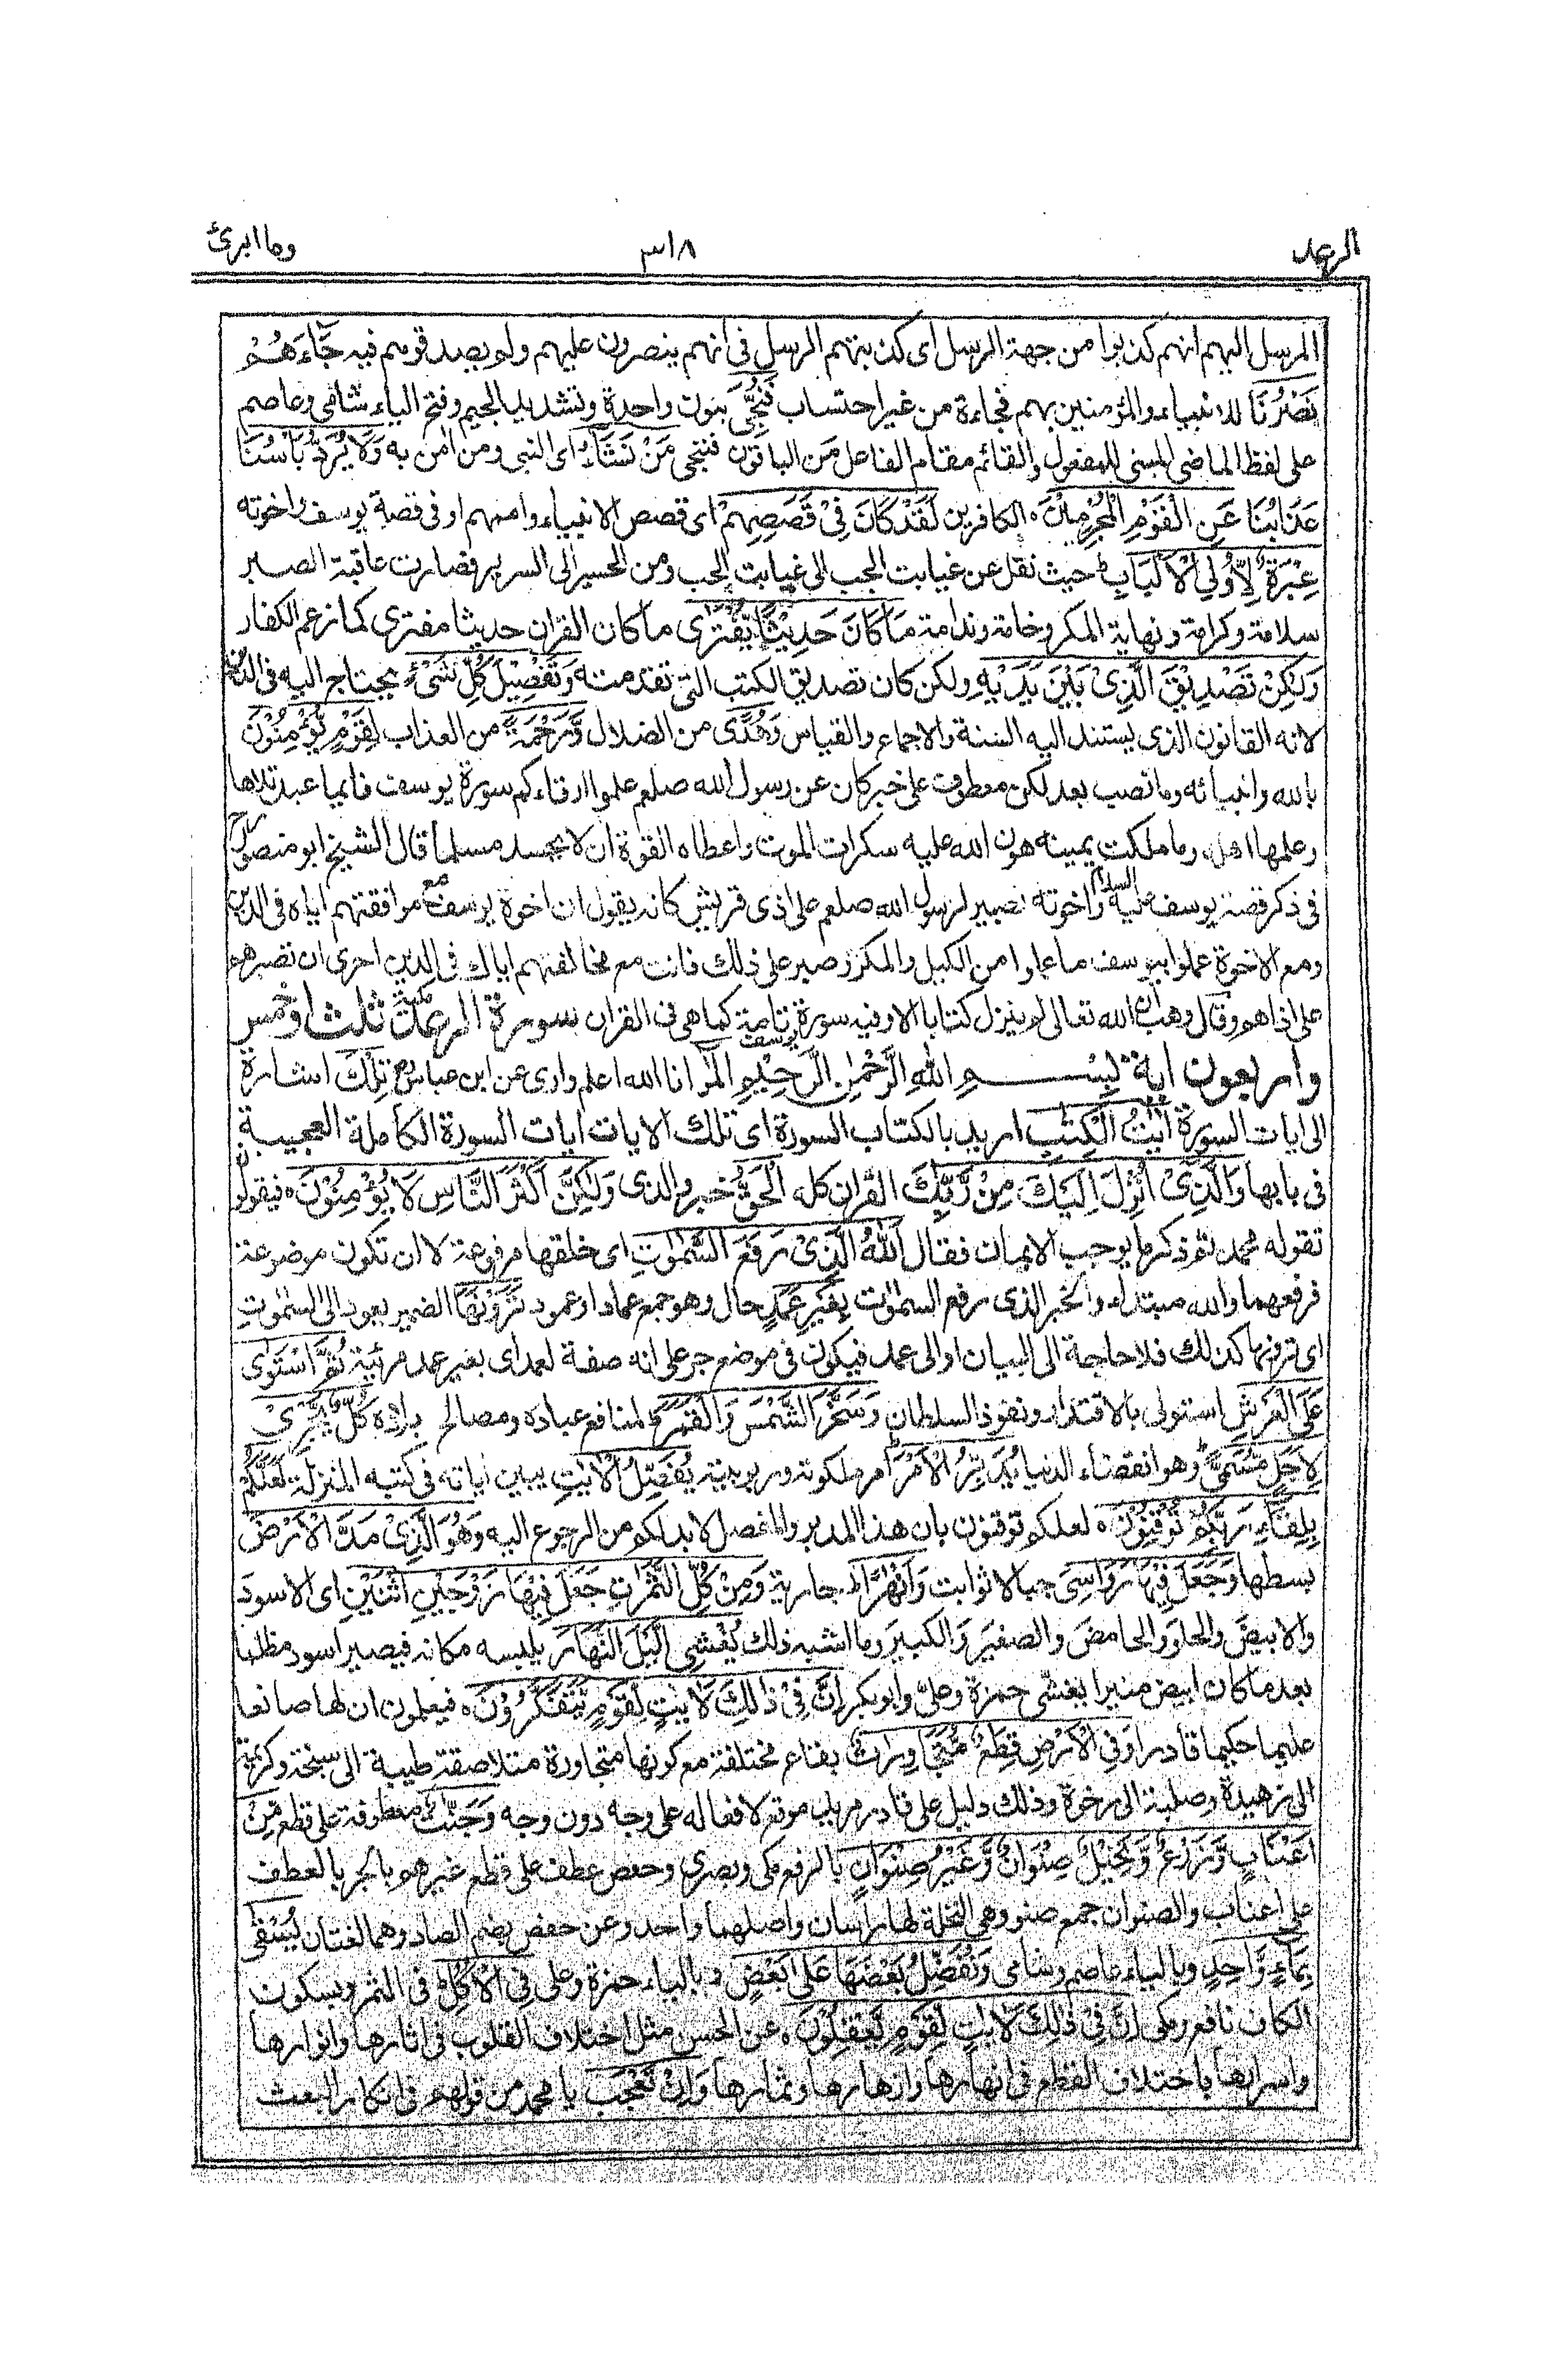 الرعد
٣١٨
وما ابرئ
المرسل اليهم انهم كذبوا من جهة الرسل اى كذبتهم الرسل فى انهم ينصرون عليهم ولم يصدقوهم فيه جَآءَهُمْ
نَصْرُنَا للانبياء والمؤمنين بهم فجاءة من غير احتساب فَنُجِّىَ بنون واحدة وتشديد الجيم وفتح الياء شامى وعاصم
على لفظ الماضى المبنى للمفعول والقائم مقام الفاعل مَن الباقون فننجى مَنْ نَّشَآءُ اى النبى ومن امن به وَلَا يُرَدُّ بَأْسُنَا
عذابنا عَنِ الْقَوْمِ الْمُجْرِمِيْنَ ه الكافرين لَقَدْ كَانَ فِىْ قَصَصِهِمْ اى قصص الانبياء واممهم او فى قصة يوسف واخوته
عِبْرَةٌ لِّاُولِى الْاَلْبَابِ ط حيث نقل عن غيابت الجب الى غيابت الحب ومن الحسير الى السرير فصارت عاقبة الصبر
سلامة وكرامة ونهاية المكر وخامة وندامة مَا كَانَ حَدِيْثًا يُّفْتَرٰى ما كان القران حديثا مفترى كما زعم الكفار
وَلٰكِنْ تَصْدِيْقَ الَّذِىْ بَيْنَ يَدَيْهِ ولكن كان تصديق الكتب التى تقدمته وَتَفْصِيْلَ كُلِّ شَىْءٍ يحتاج اليه فى الدين
لانه القانون الذى يستند اليه السنة والاجماع والقياس وَهُدًى من الضلال وَّرَحْمَةً من العذاب لِّقَوْمٍ يُّؤْمِنُوْنَ
بالله وانبيائه وما نصب بعد لكن معطوف على خبر كان عن رسول الله صلعم علموا ارقاءكم سورة يوسف فايما عبد تلاها
وعلمها اهله وما ملكت يمينه هون الله عليه سكرات الموت واعطاه القوة ان لا يحسد مسلما قال الشيخ ابو منصور رح
فى ذكر قصة يوسف عليه السلام واخوته تصبير لرسول الله صلعم على اذى قريش كانه يقول ان اخوة يوسف مع موافقتهم اياه فى الدين
ومع الاخوة عملوا بيوسف ما عملوا من الكيد والمكر وصبر على ذلك فانت مع مخالفتهم اياك فى الدين احرى ان تصبر
على اذاهم وقال وهب ان الله تعالى لم ينزل كتابا الا وفيه سورة يوسف تامة كما هى فى القران سورة الرعد مكية ثلث او خمس
واربعون اية بِسْمِ اللهِ الرَّحْمٰنِ الرَّحِيْمِ الٓمّٓرٰ انا الله اعلم وارى عن ابن عباس رض تِلْكَ اشارة
الى ايات السورة اٰيٰتُ الْكِتٰبِ اريد بالكتاب السورة اى تلك الايات ايات السورة الكاملة العجيبة
فى بابها وَالَّذِىْٓ اُنْزِلَ اِلَيْكَ مِنْ رَّبِّكَ القران كله الْحَقُّ خبر والذى وَلٰكِنَّ اَكْثَرَ النَّاسِ لَا يُؤْمِنُوْنَ ه فيقولون
تقوله محمد ثم ذكر ما يوجب الايمان فقال اَللّٰهُ الَّذِىْ رَفَعَ السَّمٰوٰتِ اى خلقها مرفوعة لا ان تكون موضوعة
فرفعها والله مبتدا والخبر الذى رفع السموات بِغَيْرِ عَمَدٍ حال وهو جمع عماد او عمود تَرَوْنَهَا الضمير يعود الى السموات
اى ترونها كذلك فلا حاجة الى البيان او الى عمد فيكون فى موضع جر على انه صفة لعمد اى بغير عمد مرئية ثُمَّ اسْتَوٰى
عَلَى الْعَرْشِ استولى بالاقتدار ونفوذ السلطان وَسَخَّرَ الشَّمْسَ وَالْقَمَرَ لمنافع عباده ومصالح بلاده كُلٌّ يَّجْرِىْ
لِاَجَلٍ مُّسَمًّى وهو انقضاء الدنيا يُدَبِّرُ الْاَمْرَ امر ملكوته وربوبيته يُفَصِّلُ الْاٰيٰتِ يبين اياته فى كتبه المنزلة لَعَلَّكُمْ
بِلِقَآءِ رَبِّكُمْ تُوْقِنُوْنَ ه لعلكم توقنون بان هذا المدبر والمفصل لا بد لكم من الرجوع اليه وَهُوَ الَّذِىْ مَدَّ الْاَرْضَ
بسطها وَجَعَلَ فِيْهَا رَوَاسِىَ جبالا ثوابت وَاَنْهٰرًا جارية وَمِنْ كُلِّ الثَّمَرٰتِ جَعَلَ فِيْهَا زَوْجَيْنِ اثْنَيْنِ اى الاسود
والابيض والحلو والحامض والصغير والكبير وما اشبه ذلك يُغْشِى الَّيْلَ النَّهَارَ يلبسه مكانه فيصير اسود مظلما
بعد ما كان ابيض منيرا يغشى حمزة وعلى وابو بكر اِنَّ فِىْ ذٰلِكَ لَاٰيٰتٍ لِّقَوْمٍ يَّتَفَكَّرُوْنَ ه فيعلمون ان لها صانعا
عليما حكيما قادرا وَفِى الْاَرْضِ قِطَعٌ مُّتَجٰوِرٰتٌ بقاع مختلفة مع كونها متجاورة متلاصقة طيبة الى سبخة وكريمة
الى زهيدة وصلبة الى رخوة وذلك دليل على قادر مريد موقع لافعاله على وجه دون وجه وَجَنّٰتٌ معطوفة على قطع مِّنْ
اَعْنَابٍ وَّزَرْعٌ وَّنَخِيْلٌ صِنْوَانٌ وَّغَيْرُ صِنْوَانٍ بالرفع مكى وبصرى وحفص عطف على قطع غيرهم بالجر بالعطف
على اعناب والصنوان جمع صنو وهى النخلة لها راسان واصلهما واحد وعن حفص بضم الصاد وهما لغتان يُسْقٰى
بِمَآءٍ وَّاحِدٍ وبالياء عاصم وشامى وَنُفَضِّلُ بَعْضَهَا عَلٰى بَعْضٍ وبالياء حمزة وعلى فِى الْاُكُلِ فى الثمر وبسكون
الكاف نافع ومكى اِنَّ فِىْ ذٰلِكَ لَاٰيٰتٍ لِّقَوْمٍ يَّعْقِلُوْنَ ه عن الحسن مثل اختلاف القلوب فى اثارها وانوارها
واسرارها باختلاف القطع فى انهارها وازهارها وثمارها وَاِنْ تَعْجَبْ يا محمد من قولهم فى انكار البعث